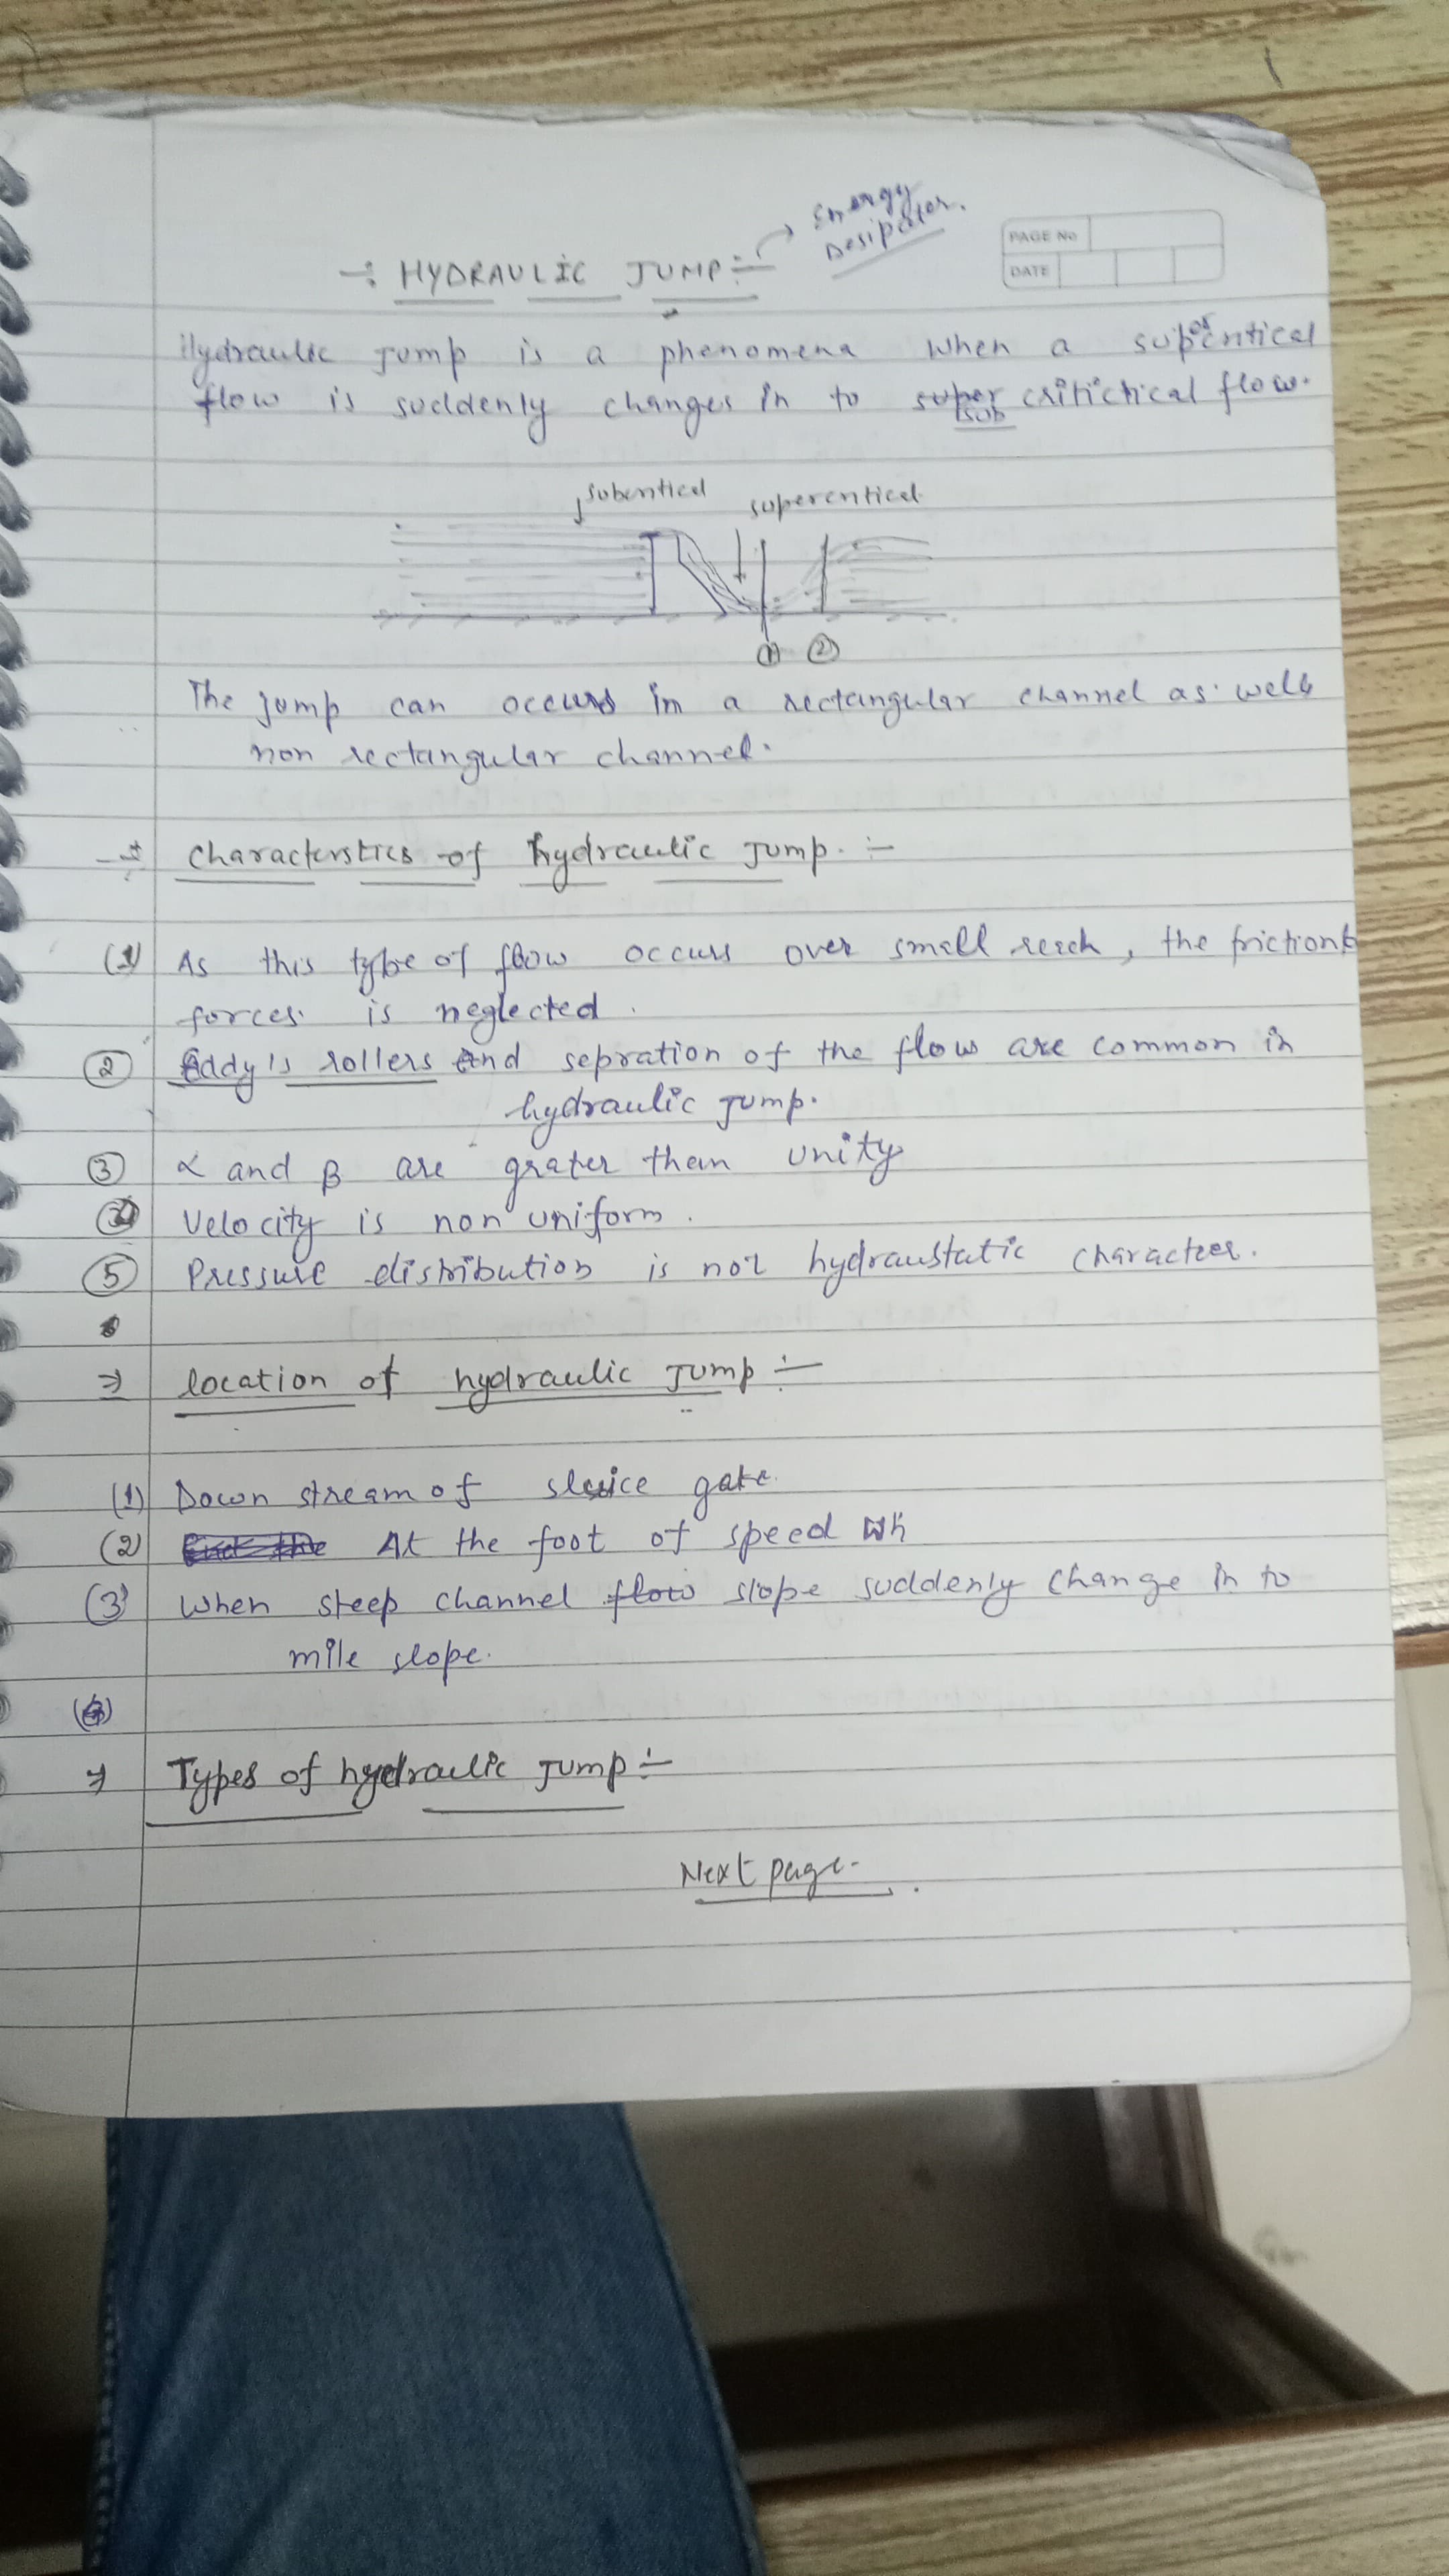 Energy
Desipator.
PAGE No
DATE
-: HYDRAULIC JUMP :-
Hydraulic Jump is a phenomena when a supercritical
flow is suddenly changes in to sub critichical flow.
subcritical
supercritical
1 2
The jump can occurs in a rectangular channel as well
non rectangular channel.
characterstics of hydraulic Jump. :-
(1) As this type of flow occurs over small reach, the friction
forces is neglected.
(2) Eddy's rollers and sepration of the flow are common in
hydraulic Jump.
(3) α and β are grater then unity
Velocity is non uniform.
(5) Pressure distribution is not hydraustatic character.
⇒ location of hydraulic Jump :-
(1) Down stream of sluice gate.
(2) At the foot of speed
(3) When steep channel slope suddenly change in to
mile slope.
⇒ Types of hydraulic Jump :-
Next page.